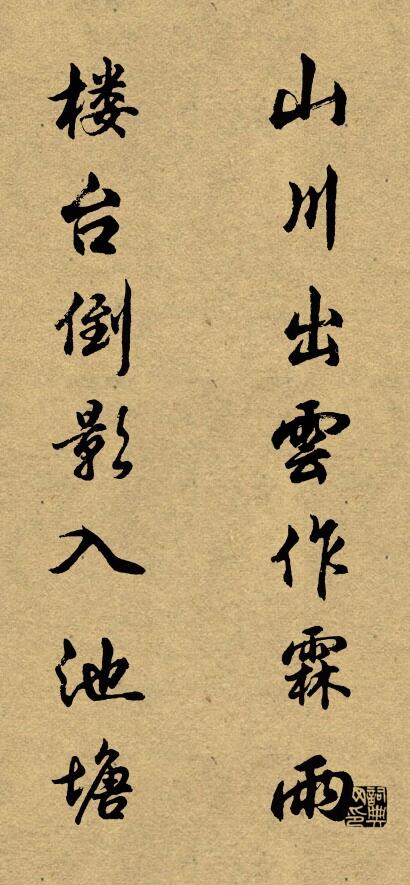 山川出雲作霖雨
楼台倒影入池塘